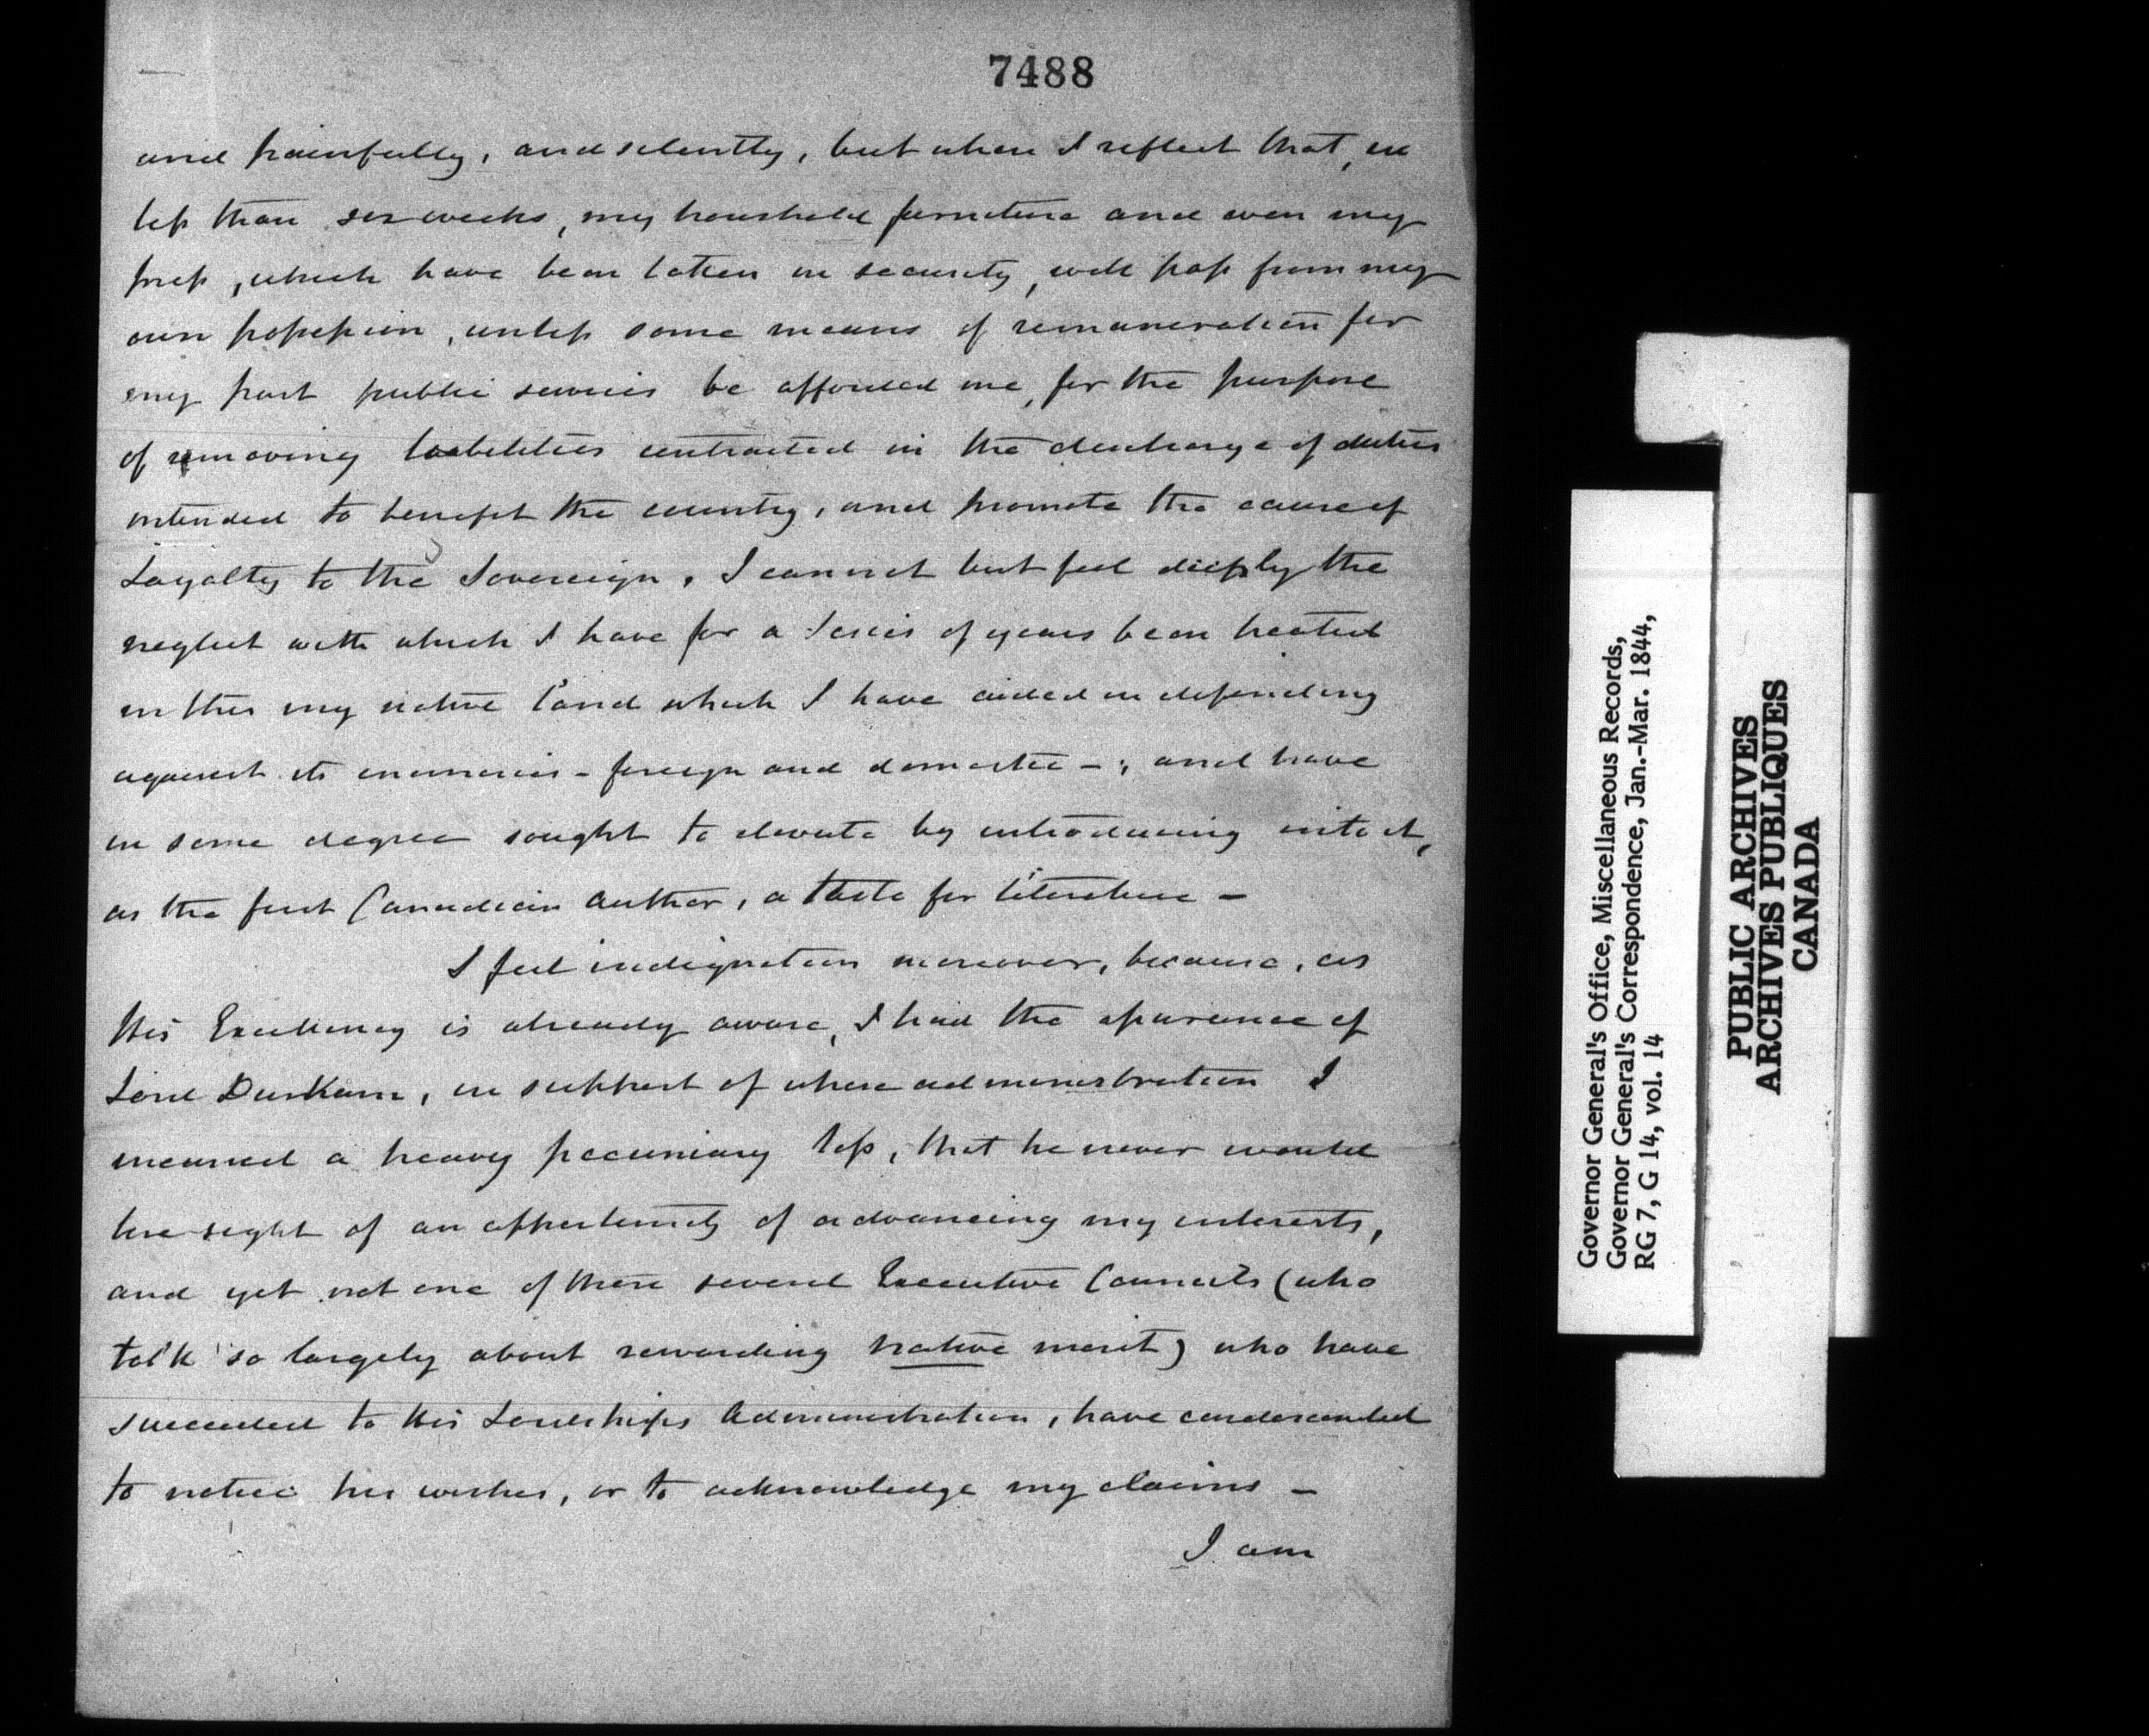 7488
and painfully, and silently, but when I reflect that, in
less than six weeks, my household furniture and even my
press, which have been taken in security, will pass from my
own possession, unless some means of remuneration for
my past public services be afforded me, for the purpose
of removing liabilities contracted in the discharge of duties
intended to benefit the country, and promote the cause of
Loyalty to the Sovereign, I cannot but feel deeply the
neglect with which I have for a series of years been treated
in this my native land which I have aided in defending
against its enemies - foreign and domestic - ; and have
in some degree sought to elevate by introducing into it,
as the first Canadian author, a taste for literature -
I feel indignation moreover, because, as
His Excellency is already aware, I had the assurance of
Lord Durham, in support of whose administration I
incurred a heavy pecuniary loss, that he never would
lose sight of an opportunity of advancing my interests,
and yet not one of those several Executive Councils (who
talk so largely about rewarding native merit) who have
succeeded to His Lordships Administration, have condescended
to notice his wishes, or to acknowledge my claims -
I am
Governor General's Office, Miscellaneous Records,
Governor General's Correspondence, Jan.-Mar. 1844,
RG 7, G 14, vol. 14
PUBLIC ARCHIVES
ARCHIVES PUBLIQUES
CANADA